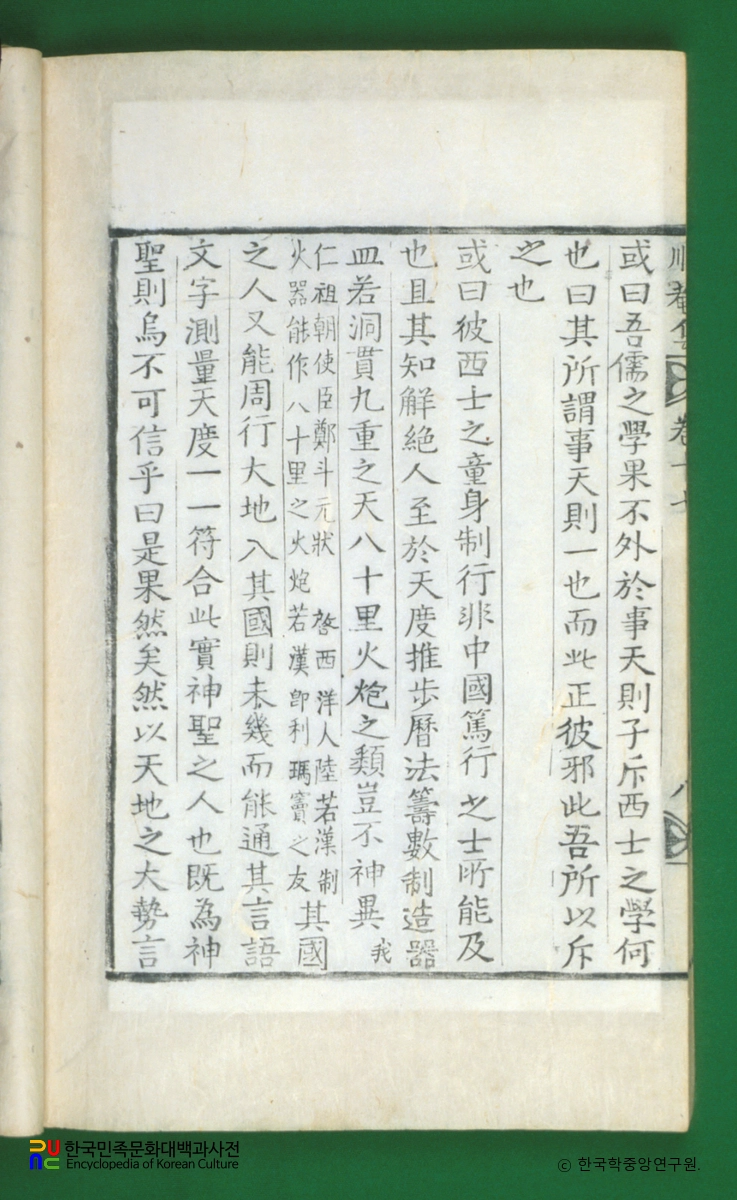 順菴集 卷十七 八
或曰吾儒之學果不外於事天則子斥西士之學何
也曰其所謂事天則一也而此正彼邪此吾所以斥
之也
或曰彼西士之童身制行非中國篤行之士所能及
也且其知解絶人至於天度推步曆法籌數制造器
皿若洞貫九重之天八十里火炮之類豈不神異 我
仁祖朝使臣鄭斗元狀 啓西洋人陸若漢制
火器能作八十里之火炮若漢卽利瑪竇之友 其國
之人又能周行大地入其國則未幾而能通其言語
文字測量天度一一符合此實神聖之人也旣爲神
聖則烏不可信乎曰是果然矣然以天地之大勢言
한국민족문화대백과사전
Encyclopedia of Korean Culture
© 한국학중앙연구원.